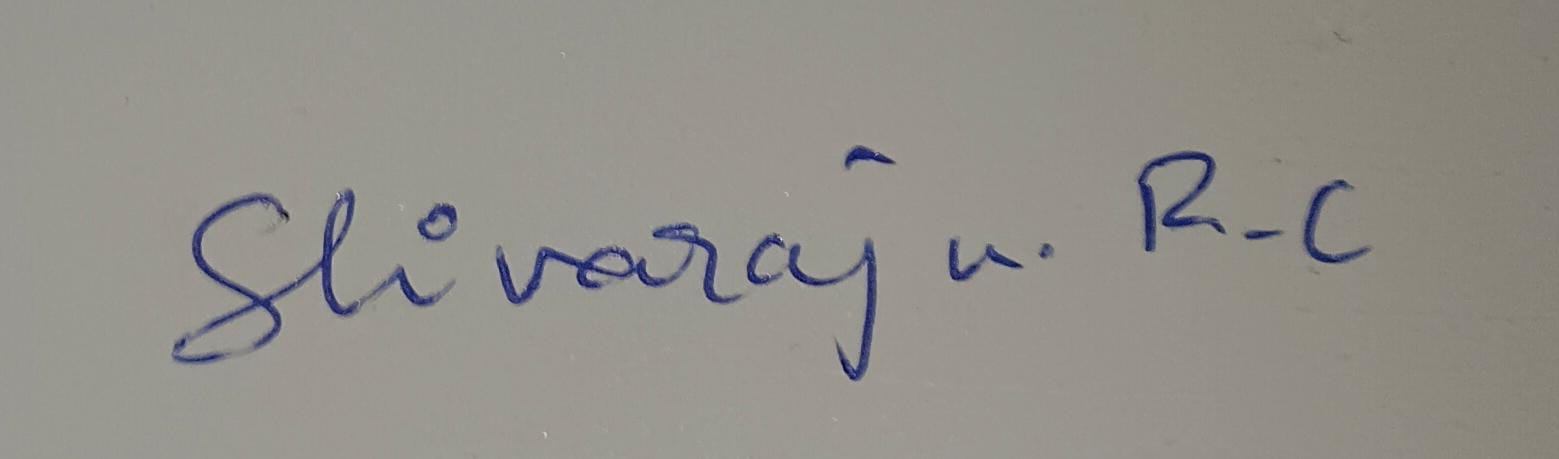 Shivaraj u. R-C